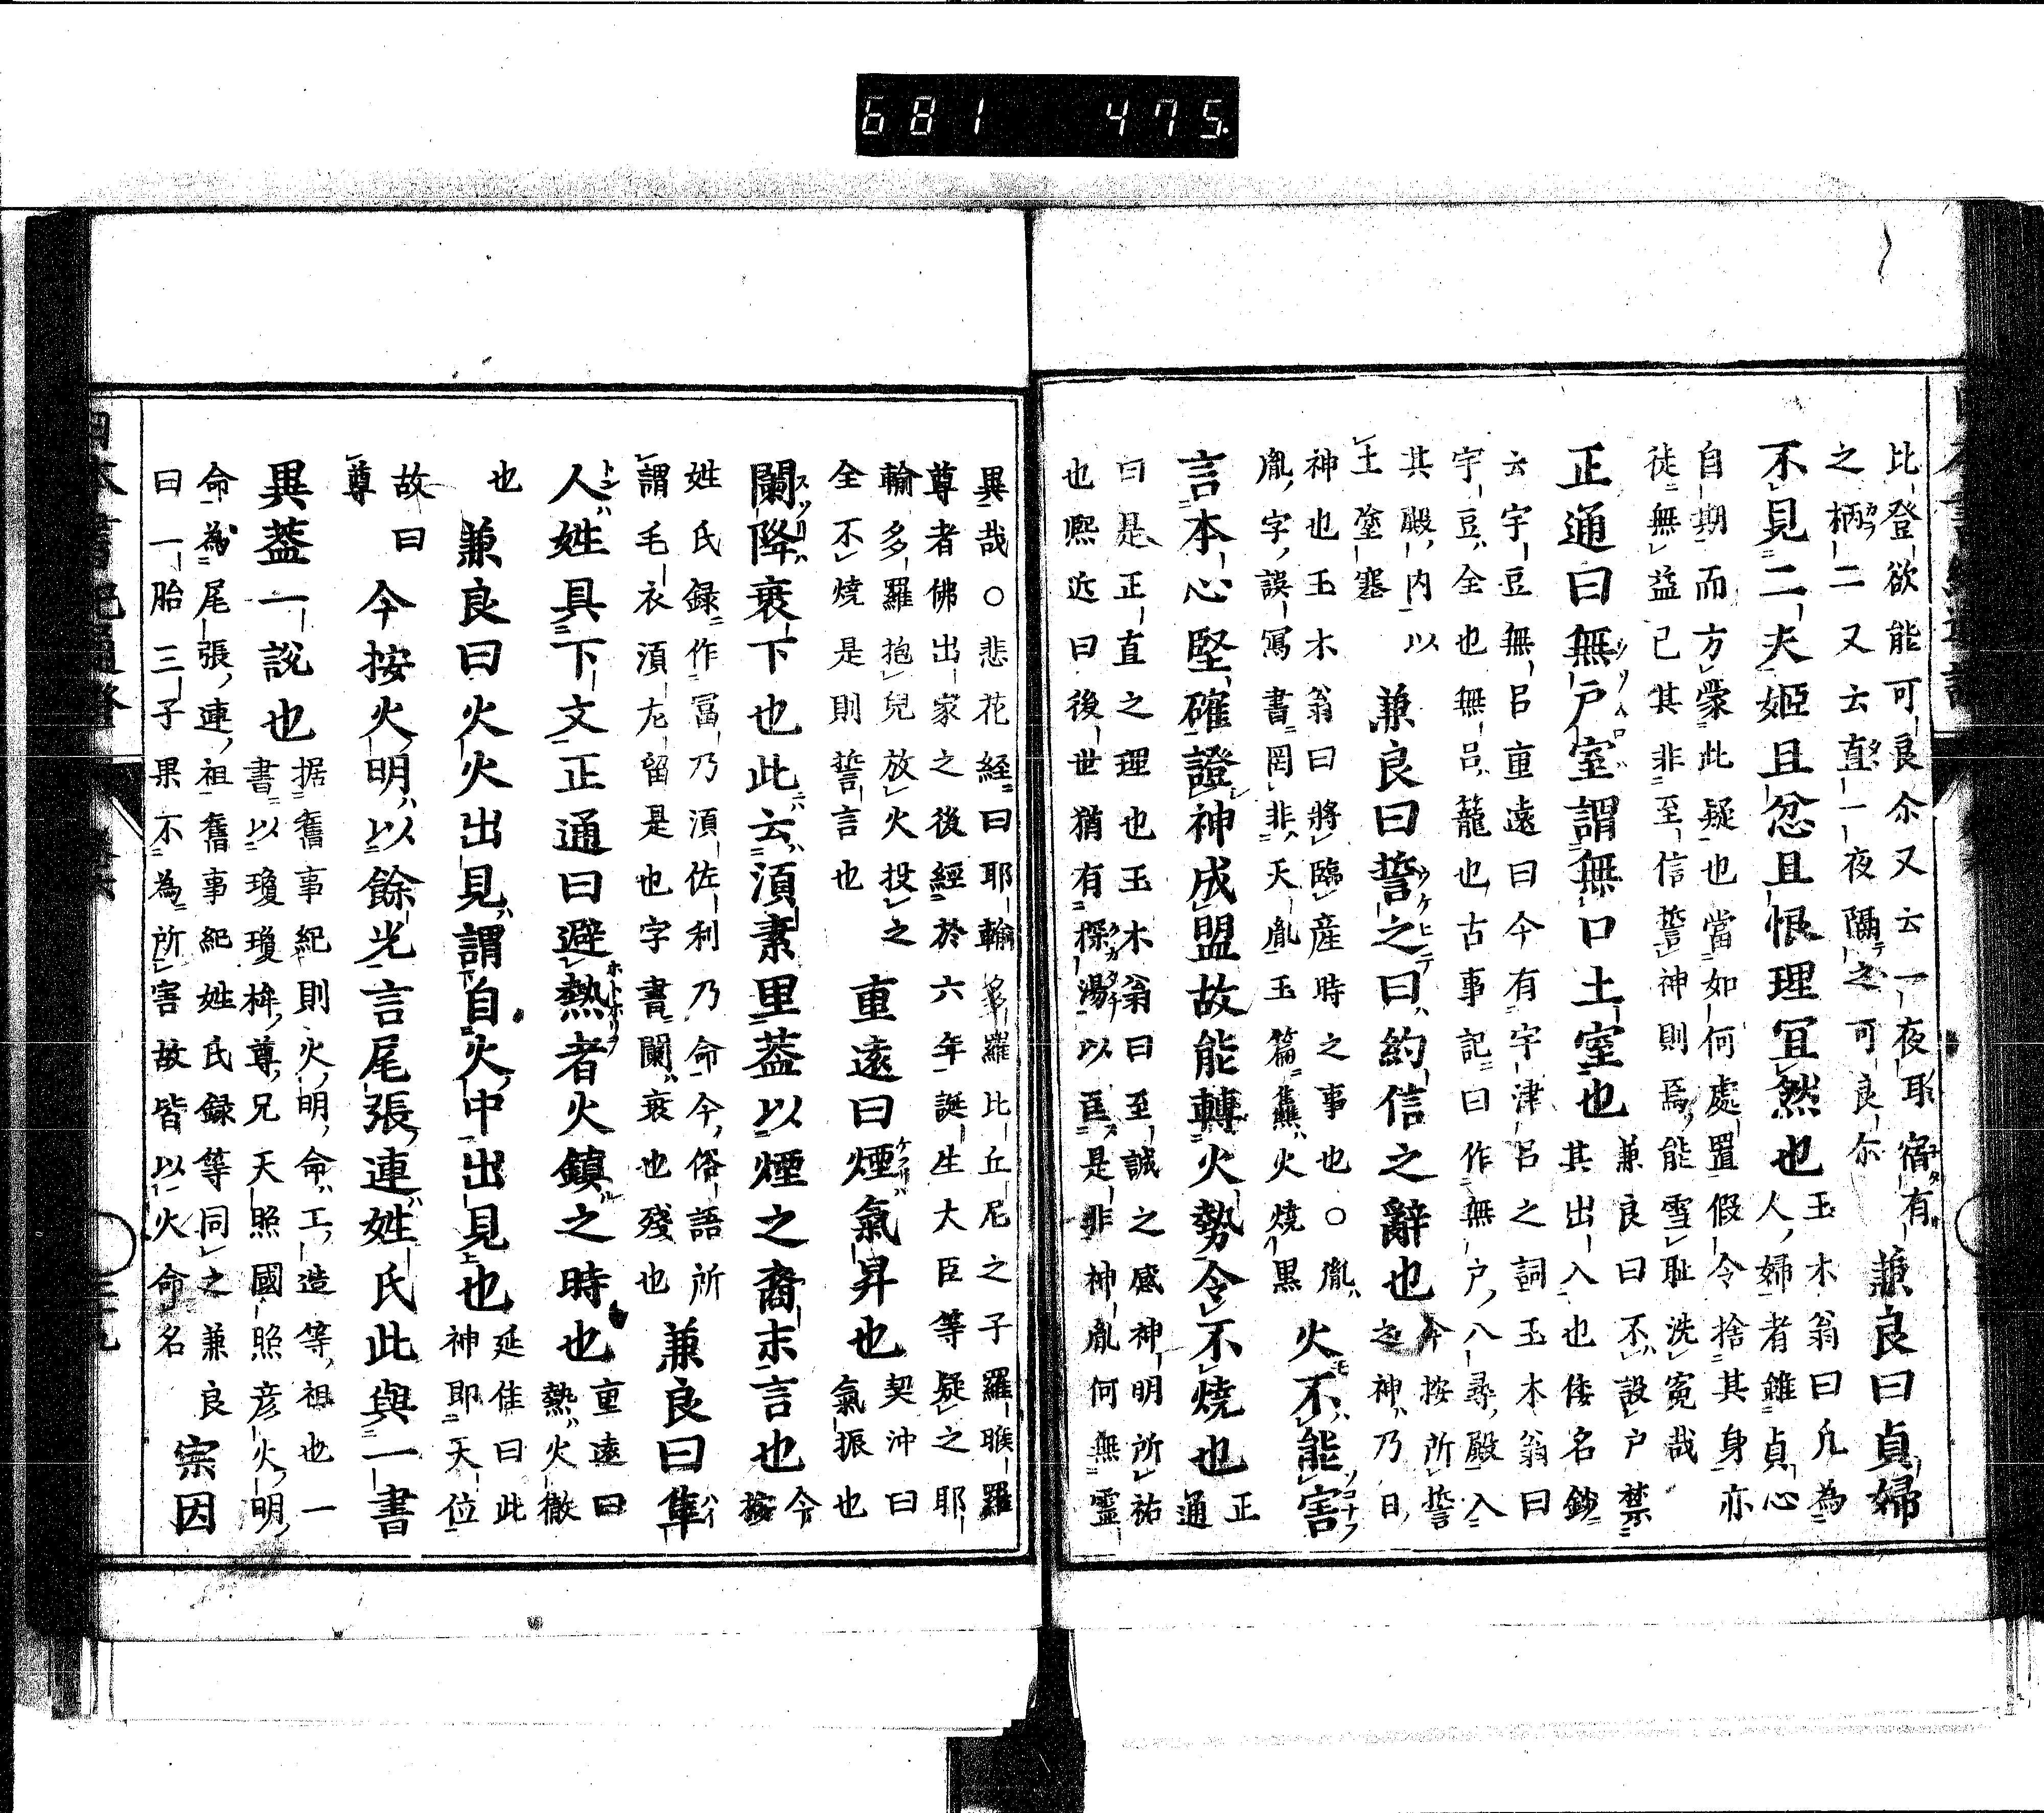 比登欲能可良尓又云一夜耶宿有
之柄二又云直一夜隔之可良尓
兼良曰貞婦
不見二夫姬且忿且恨理宜然也
玉木翁曰凡為
人婦者雖貞心
自期而方蒙此疑也當如何處置假令捨其身亦
徒無益已其非至信誓神則焉能雪耻洗寃哉
正通曰無戸室謂無口土室也
兼良曰不設戸禁
其出入也倭名鈔
云宇豆無呂重遠曰今有宇津呂之詞玉木翁曰
宇豆全也無呂籠也古事記曰作無戸八尋殿入
其殿内以
土塗塞
兼良曰誓之曰約信之辭也
今按所誓
之神乃日
神也玉木翁曰將臨産時之事也○胤
胤字誤寫書罔非天胤玉篇燋火燒黒
火不能害
言本心堅確證神成盟故能轉火勢令不燒也
正
通
曰是正直之理也玉木翁曰至誠之感神明所祐
也熙近曰後世猶有探湯以臣是非神胤何無靈
異哉○悲花経曰耶輸多羅比丘尼之子羅睺羅
尊者佛出家之後經於六年誕生大臣等疑之耶
輸多羅抱兒放火投之
全不燒是則誓言也
重遠曰煙氣昇也
契沖曰
氣振也
闌降衰下也此云湏素里蓋以煙之裔末言也
今
按
姓氏録作冨乃湏佐利乃命今俗語所
謂毛衣湏尤留是也字書闌衰也殘也
兼良曰隼
人姓具下文正通曰避熱者火鎮之時也
重遠曰
熱火徹
也
兼良曰火火出見謂自火中出見也
延佳曰此
神即天位
故曰
尊
今按火明以餘光言尾張連姓氏此與一書
異蓋一説也
据舊事紀則火明命工造等祖也一
書以瓊瓊杵尊兄天照國照彦火明
命為尾張連祖舊事紀姓氏録等同之兼良
曰一胎三子果不為所害故皆以火命名
宗因